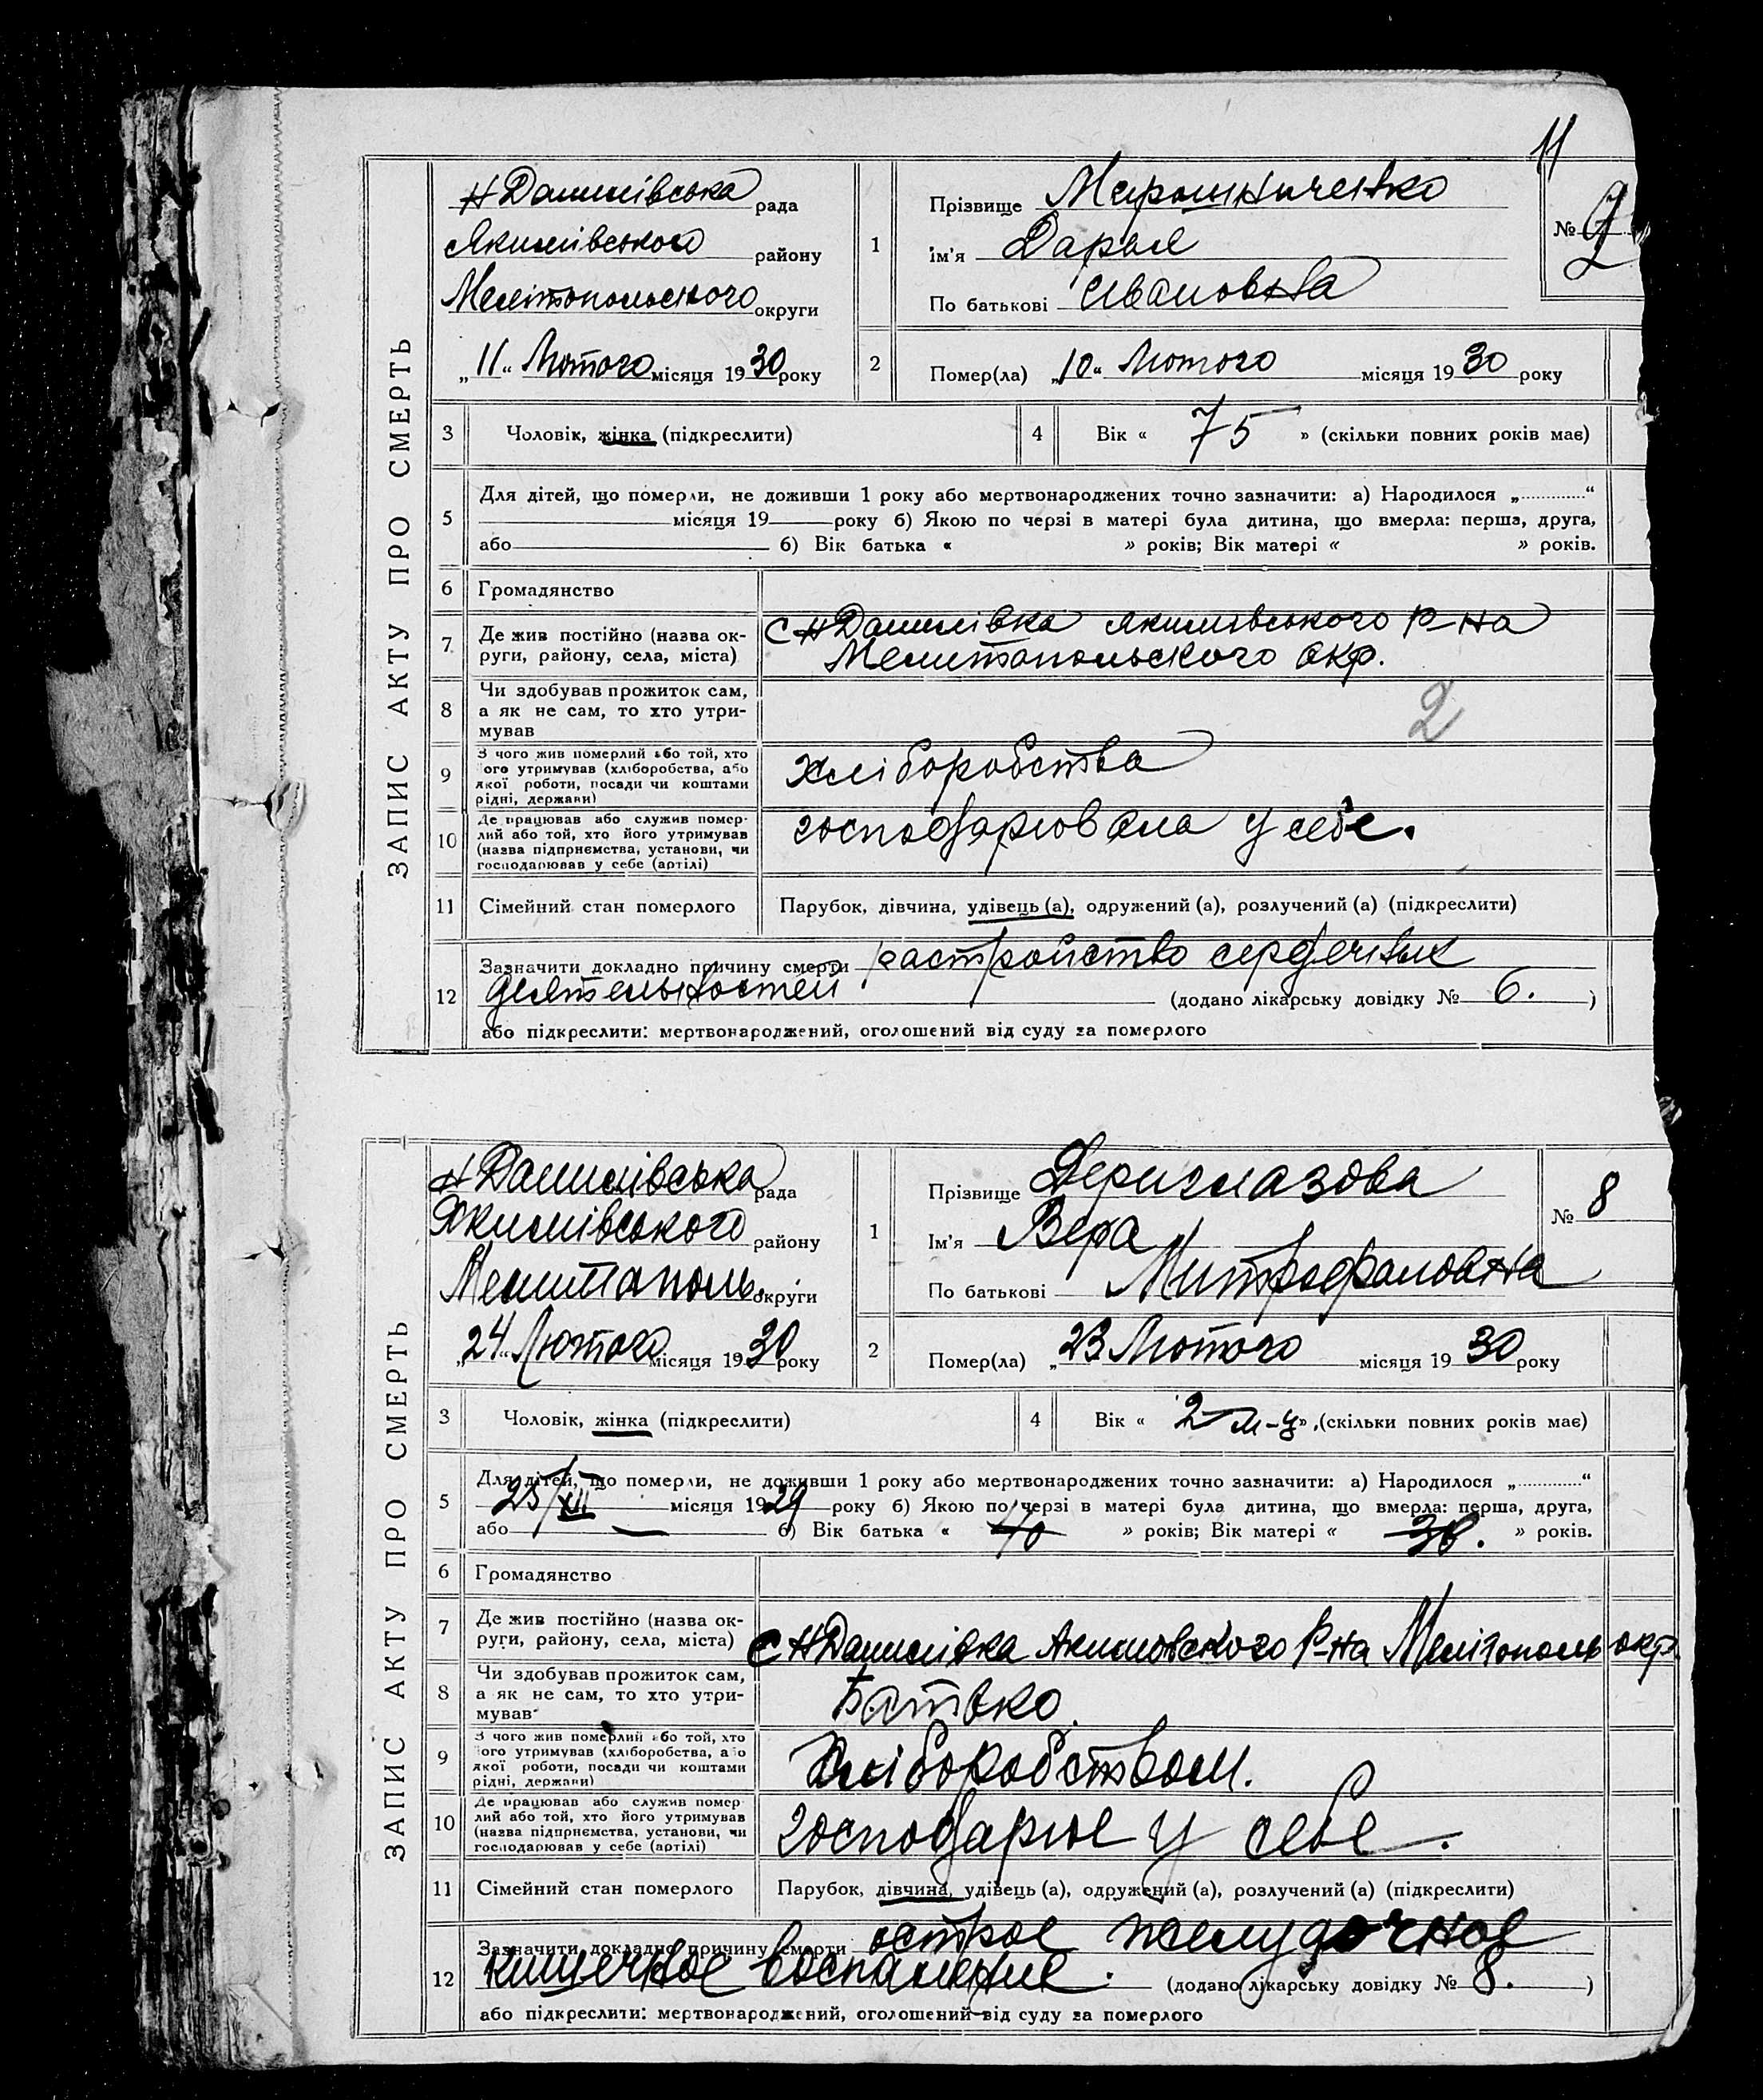 11
ЗАПИС АКТУ ПРО СМЕРТЬ
Н Данилівська рада
Якимівського району
Мелітопольского округи
„11“ Лютого місяця 1930 року
1 Прізвище Мирошниченко
ім'я Дарья
По батькові Ивановна
№
2 Помер(ла) „10“ Лютого місяця 1930 року
3 Чоловік, жінка (підкреслити)
4 Вік « 75 » (скільки повних років має)
5 Для дітей, що померли, не доживши 1 року або мертвонароджених точно зазначити: а) Народилося „.............“
місяця 19 року б) Якою по черзі в матері була дитина, що вмерла: перша, друга,
або б) Вік батька « » років; Вік матері « » років.
6 Громадянство
7 Де жив постійно (назва ок-
руги, району, села, міста)
с Н Данилівка Якимівського р-на
Мелитопольского окр.
8 Чи здобував прожиток сам,
а як не сам, то хто утри-
мував
2
9 З чого жив померлий або той, хто
його утримував (хліборобства, або
якої роботи, посади чи коштами
рідні, держави)
Хліборобства
10 Де працював або служив помер-
лий або той, хто його утримував
(назва підприємства, установи, чи
господарював у себе (артілі)
господарювала у себе.
11 Сімейний стан померлого
Парубок, дівчина, удівець (а), одружений (а), розлучений (а) (підкреслити)
12 Зазначити докладно причину смерти растройство сердечных
деятельностей (додано лікарську довідку № 6. )
або підкреслити: мертвонароджений, оголошений від суду за померлого
ЗАПИС АКТУ ПРО СМЕРТЬ
Н Данилівська рада
Якимівського району
Мелитополь. округи
„24“ Лютого місяця 1930 року
1 Прізвище Дериглазова
Ім'я Вера
По батькові Митрофановна
№ 8
2 Помер(ла) „23 Лютого місяця 1930 року
3 Чоловік, жінка (підкреслити)
4 Вік « 2 м-ц», (скільки повних років має)
5 Для дітей, що померли, не доживши 1 року або мертвонароджених точно зазначити: а) Народилося „.............“
25/XII місяця 1929 року б) Якою по черзі в матері була дитина, що вмерла: перша, друга,
або — б) Вік батька « 40 » років; Вік матері « 38. » років.
6 Громадянство
7 Де жив постійно (назва ок-
руги, району, села, міста)
с Н Данилівка Акимовского Р-на Мелітополь окр.
8 Чи здобував прожиток сам,
а як не сам, то хто утри-
мував
Батько.
9 З чого жив померлий або той, хто
його утримував (хліборобства, або
якої роботи, посади чи коштами
рідні, держави)
Хліборобством.
10 Де працював або служив помер-
лий або той, хто його утримував
(назва підприємства, установи, чи
господарював у себе (артілі)
господарює у себе.
11 Сімейний стан померлого
Парубок, дівчина, удівець (а), одружений (а), розлучений (а) (підкреслити)
12 Зазначити докладно причину смерти острое желудочное
кишечное воспаление. (додано лікарську довідку № 8. )
або підкреслити: мертвонароджений, оголошений від суду за померлого